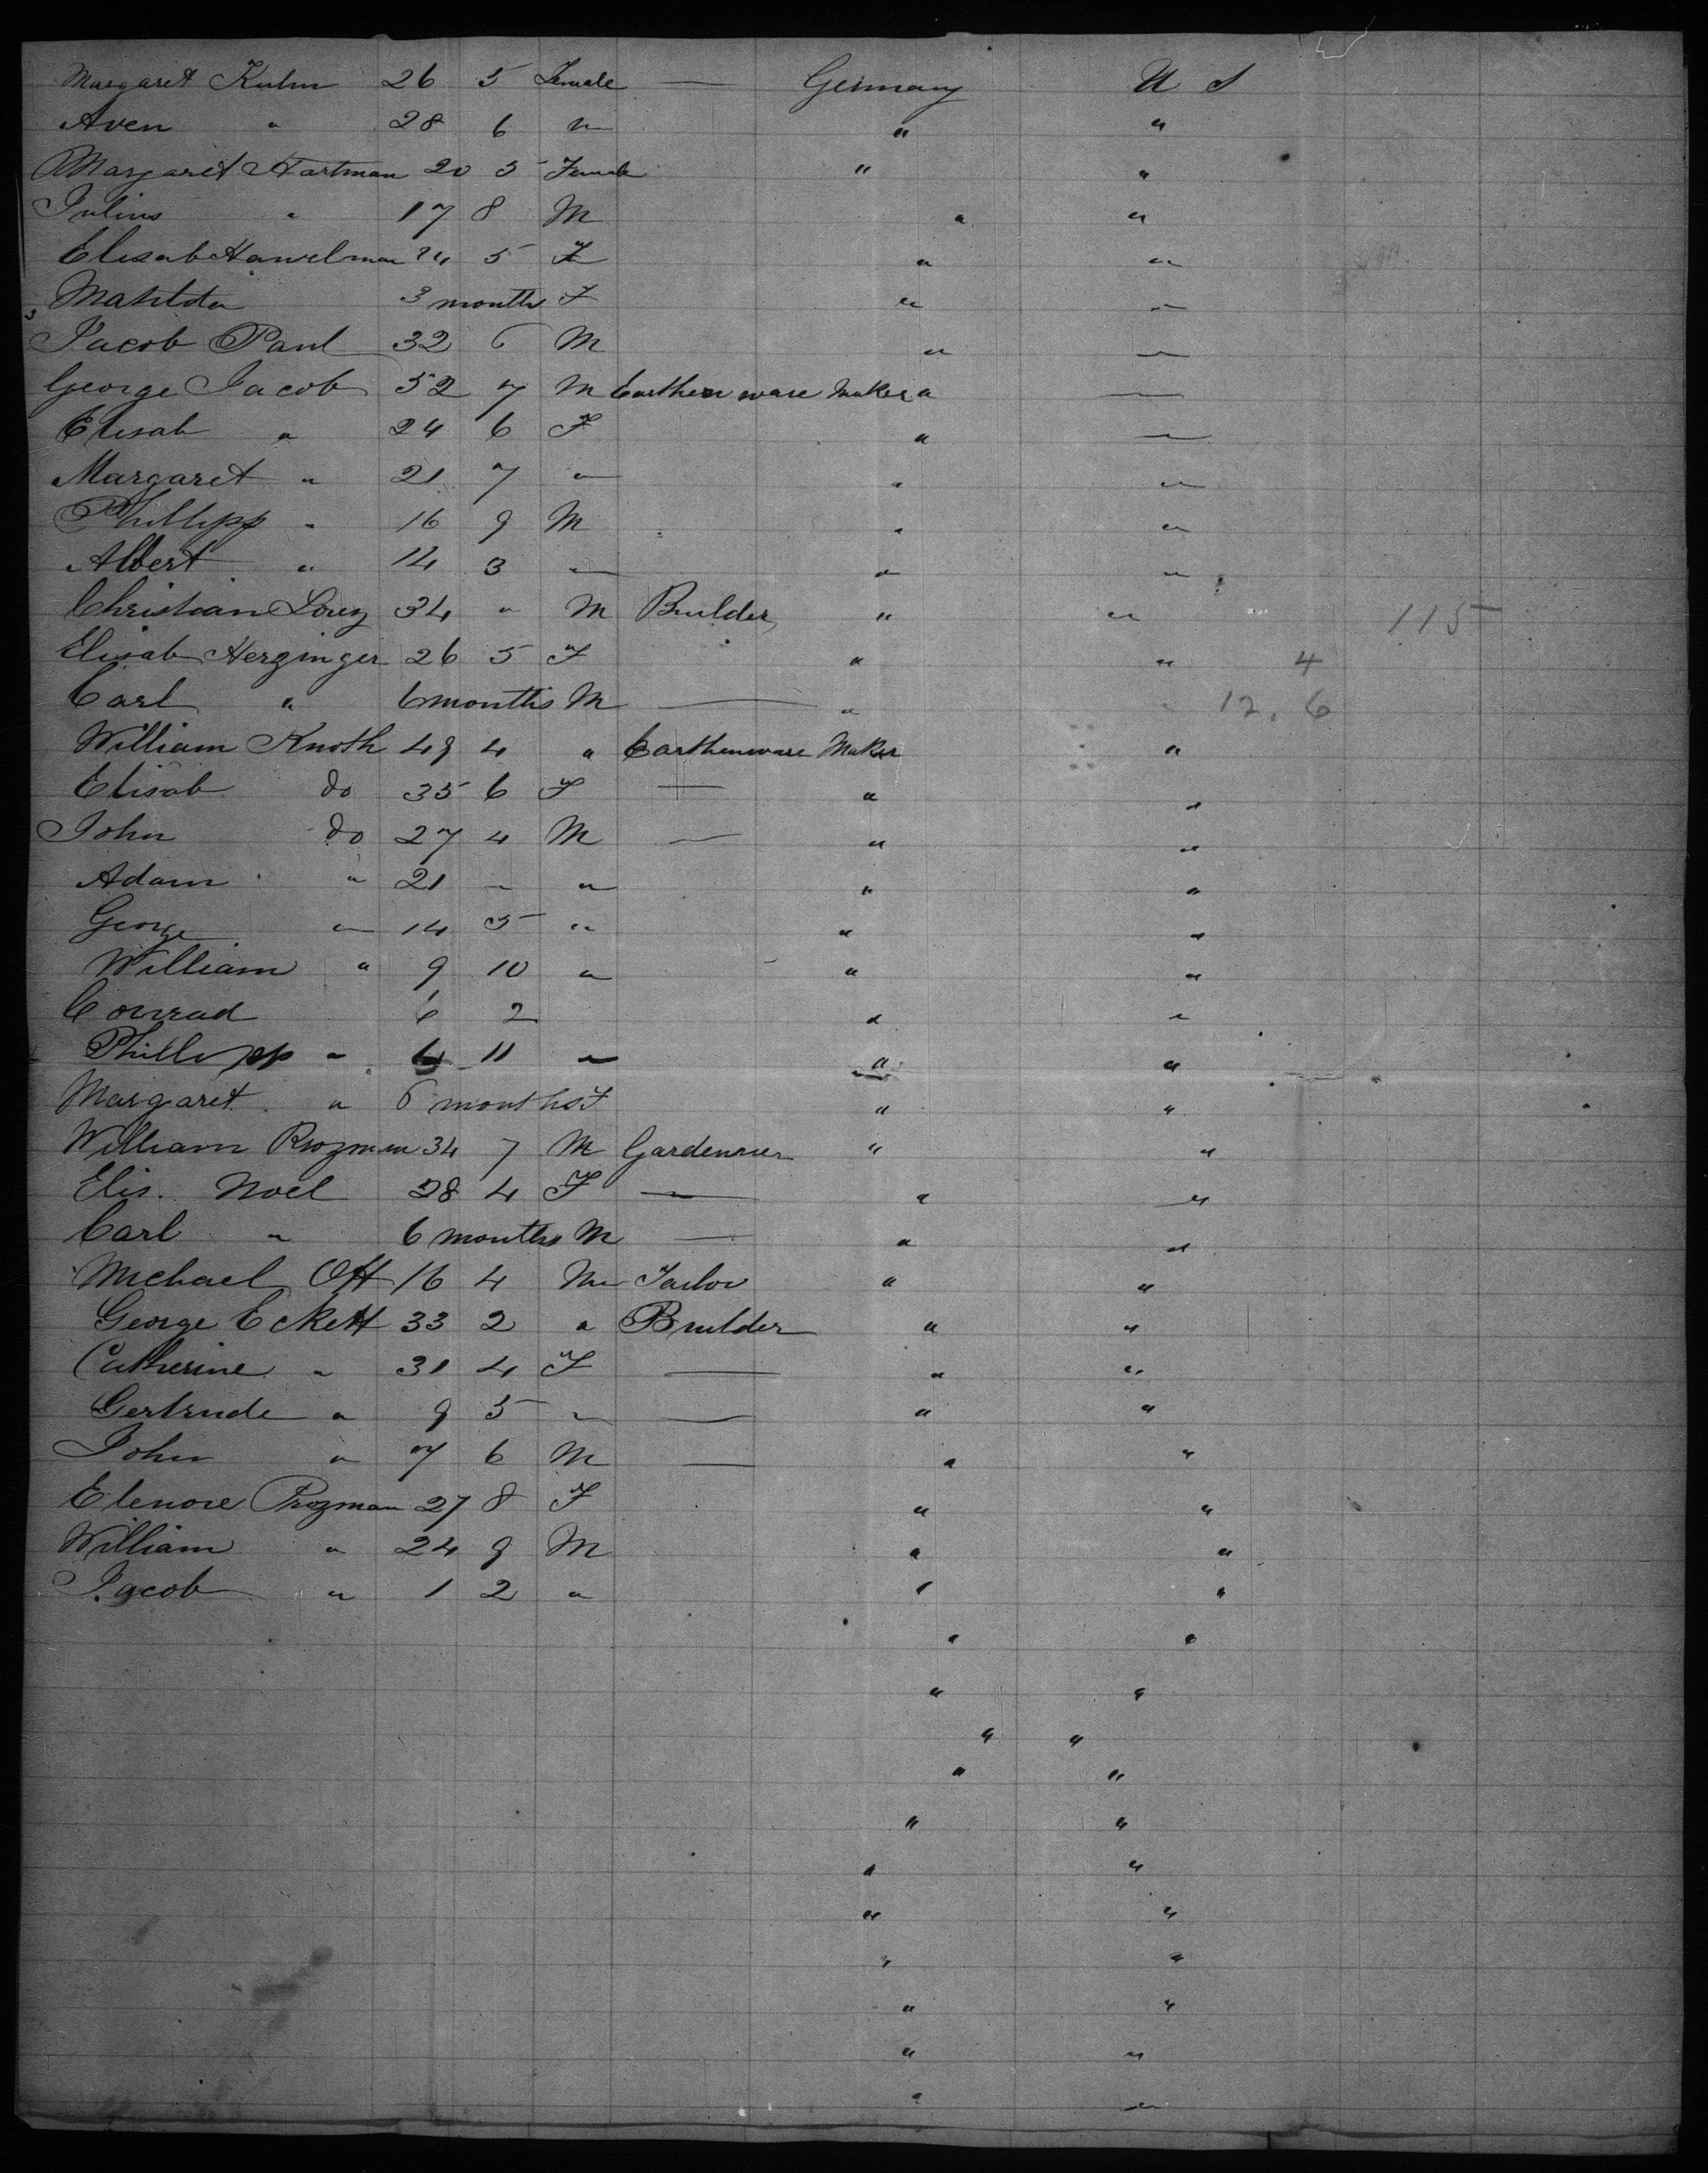 Margaret Kuhn 26 5 Female — Germany U S
Aven " 28 6 m " "
Margaret Hartman 20 5 Female " "
Julius " 17 8 M " "
Elisab Hanselman 24 5 F " "
Matilda 3 months F " "
Jacob Paul 32 6 M " "
George Jacob 52 7 M Earthen ware Maker " —
Elisab " 24 6 F " "
Margaret " 21 7 " " "
Phillipp " 16 9 M " "
Albert " 14 3 " " "
Christian Lorez 34 " M Builder " " 115
Elisab Herzinger 26 5 F " " 4
Carl " 6 months M — " " 12.6
William Knoth 49 4 " Earthenware Maker "
Elisab do 35 6 F — " "
John do 27 4 M — " "
Adam " 21 " " " "
George " 14 5 " " "
William " 9 10 " " "
Conrad 6 2 " "
Phillipp " 4 11 " " "
Margaret " 6 months F " "
William 34 7 M Gardenner " "
Elis. Noel 28 4 F — " "
Carl " 6 months M — " "
Michael Ott 16 4 M Tailor " "
George Eckett 33 2 " Builder " "
Catherine " 31 4 F — " "
Gertrude " 9 5 " — " "
John " 7 6 M — " "
Elenore 27 8 F " "
William " 24 9 M " "
Jacob " 1 2 " " "
" "
" "
" "
" "
" "
" "
" "
" "
" "
" "
" "